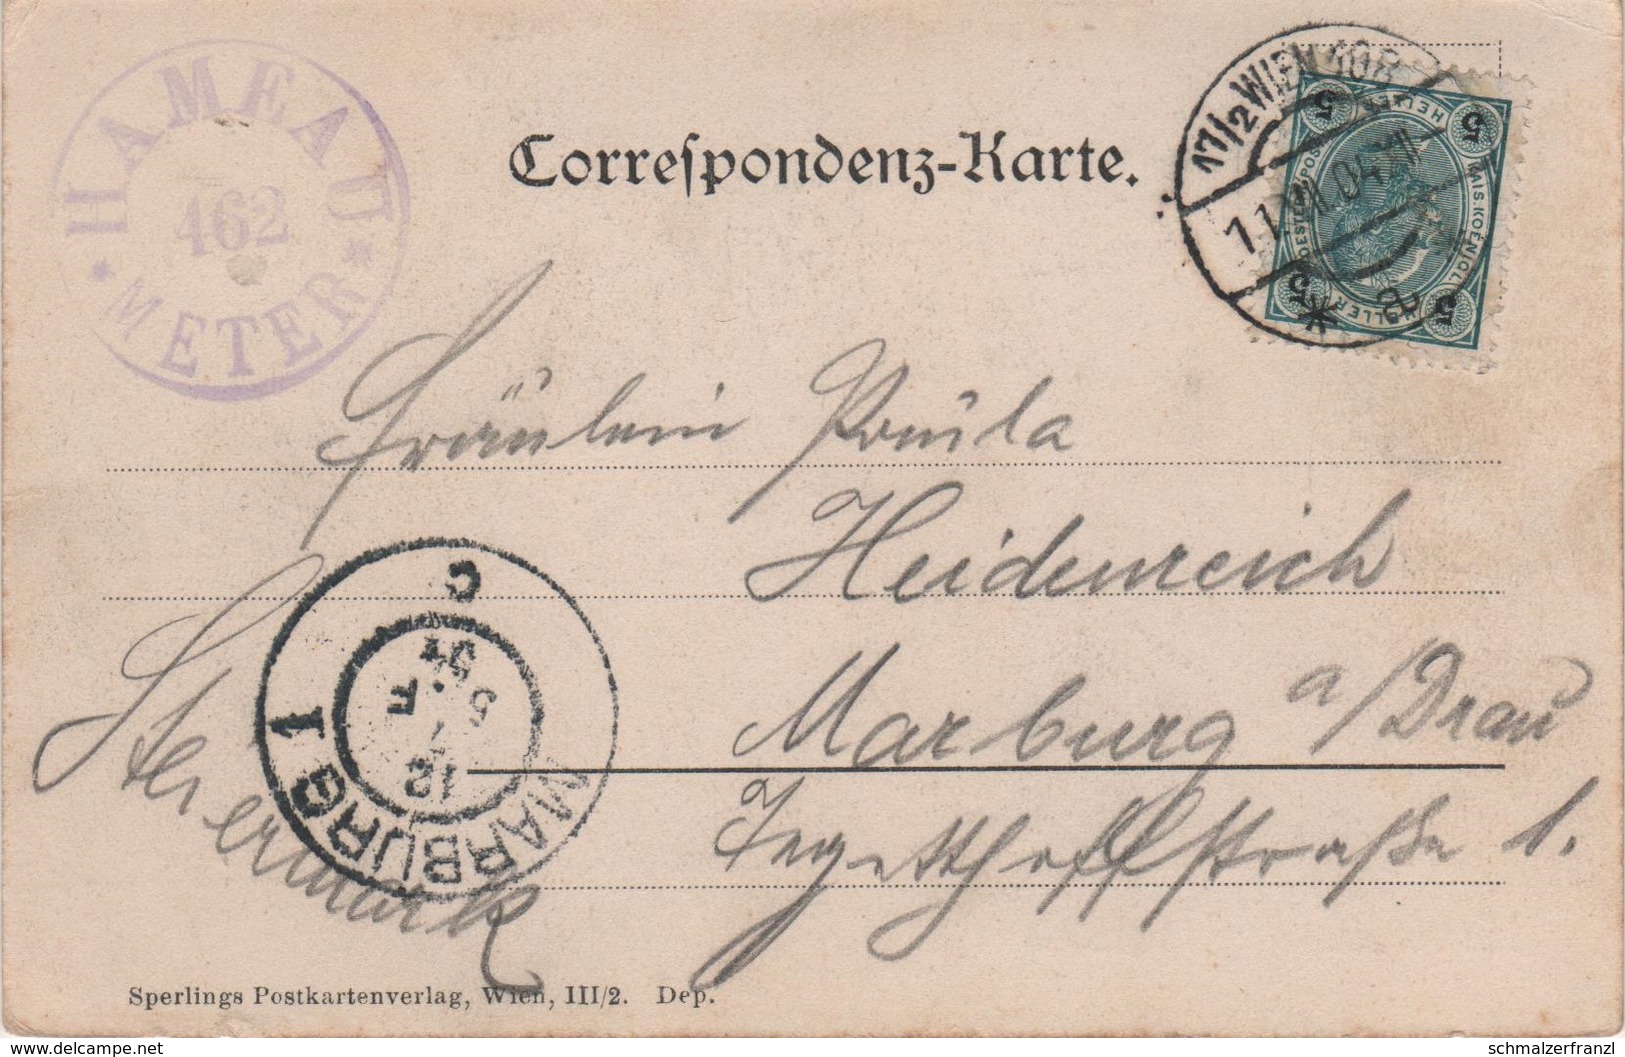 HAMEAU
462
* METER *
Correspondenz-Karte.
17/2 WIEN 108
* a
5 5
5 5
KAIS. KOENIGL.
HELLER HELLER
Fräulein Paula
Heidenreich
Marburg a/Drau
Tegetthoffstraße 1.
Steiermark
MARBURG 1
C
12
Sperlings Postkartenverlag, Wien, III/2. Dep.
www.delcampe.net
schmalzerfranzl